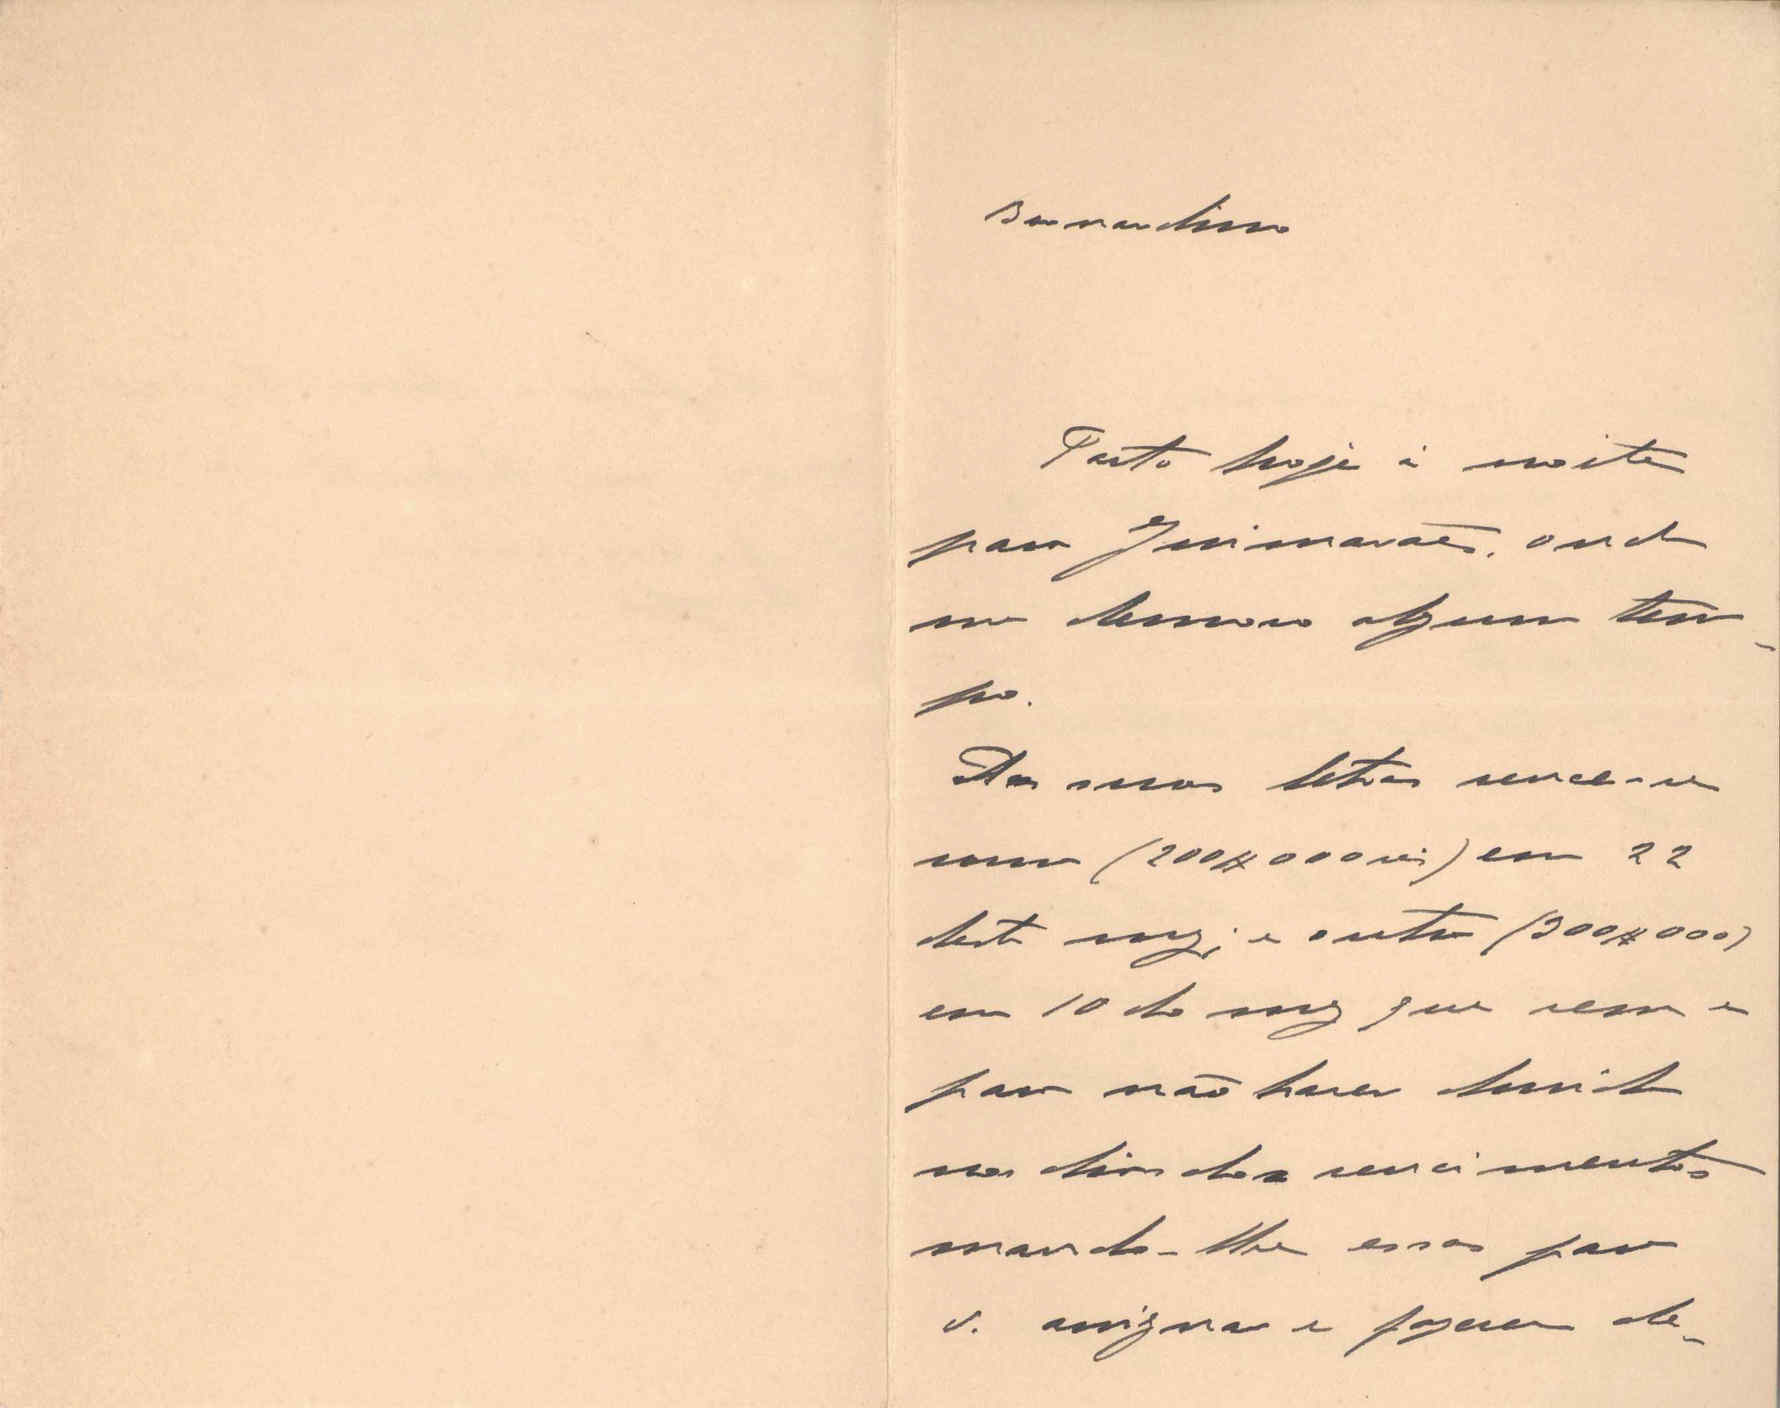 Bernardino
Parto hoje á noite
para Guimarães, onde
me demoro algum tem-
po.
Das suas letras vence-se
uma (200$000 reis) em 22
deste mez, e outra (300$000)
em 10 do mez que vem e
para não haver duvida
nos dias dos vencimentos
mando-lhe essas para
V. assignar e fazerem de-